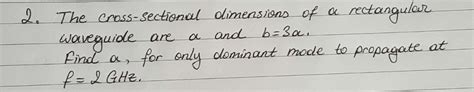 2. The cross-sectional dimensions of a rectangular
waveguide are a and b=3a.
Find a, for only dominant mode to propagate at
f= 2 GHz.